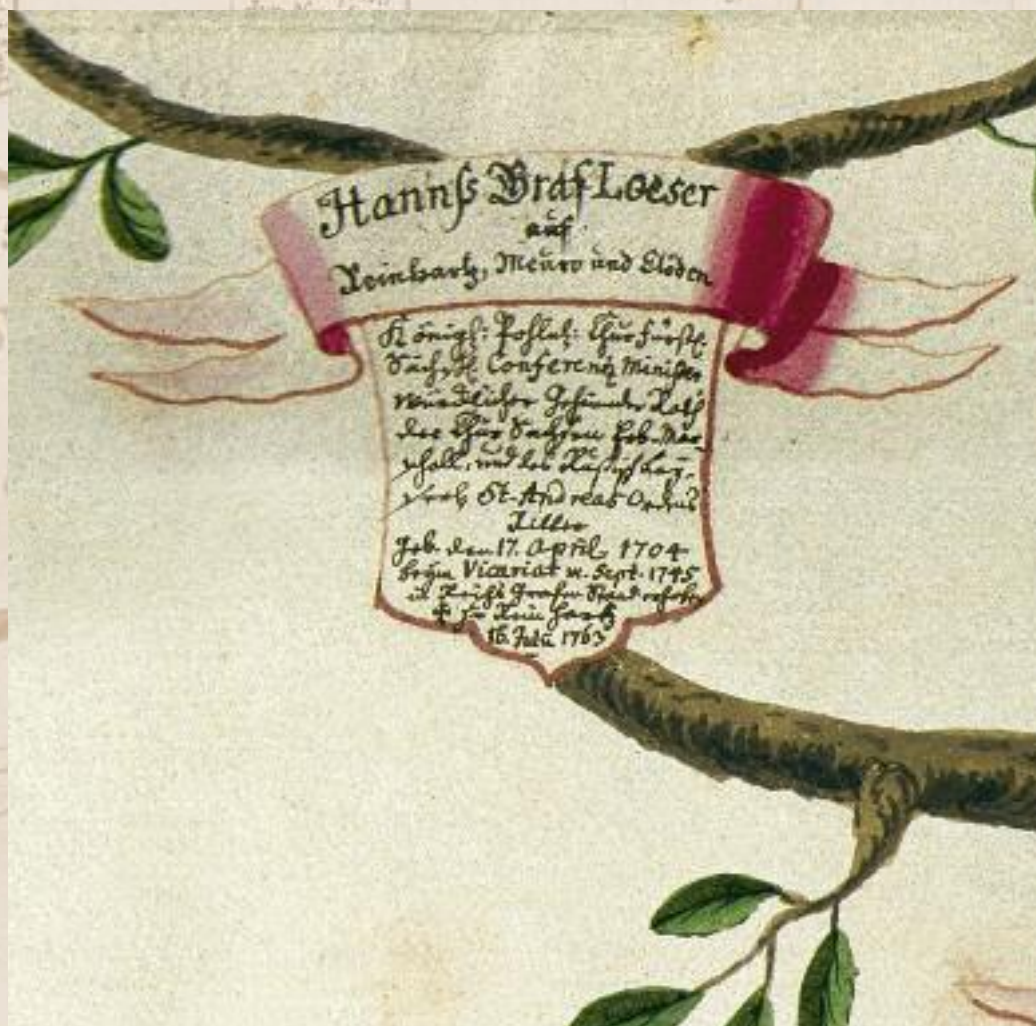 Hannß Graf Loeser
auf
Reinhartz, Meuro und Clöden
Königl: Pohln: Churfürstl.
Sächß. Conferenz Minister
Würcklicher Geheimder Rath
der Chur Sachsen Erb-Mar-
schall, und des Rußisch Kay-
serl. St. Andreas Ordens
Ritter
Geb. den 17. April. 1704
beym Vicariat m. Sept. 1745
in Reichs Grafen Stand erhoben
† zu Reinhartz
16. July 1763